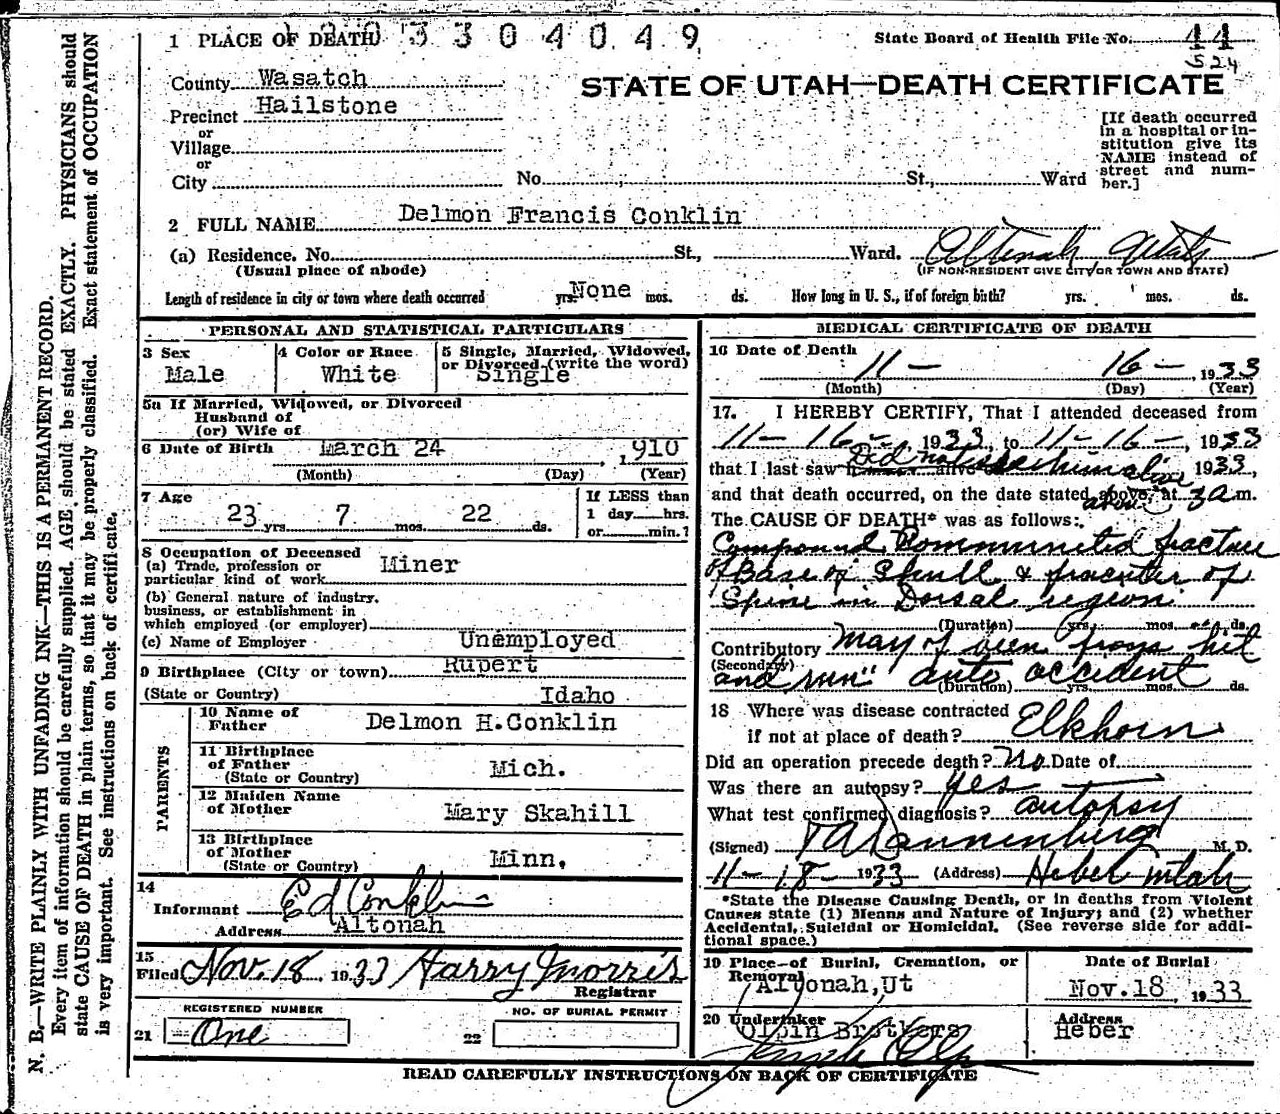 1 PLACE OF DEATH 3 3 0 4 0 4 9
State Board of Health File No. 44
524
County Wasatch
STATE OF UTAH—DEATH CERTIFICATE
Precinct Hailstone
or
Village
or
City No. St., Ward
[If death occurred in a hospital or in-
stitution give its
NAME instead of
street and num-
ber.]
2 FULL NAME Delmon Francis Conklin
(a) Residence. No. St., Ward. Altonah Utah
(Usual place of abode) (IF NON-RESIDENT GIVE CITY OR TOWN AND STATE)
Length of residence in city or town where death occurred yrs. None mos. ds. How long in U. S., if of foreign birth? yrs. mos. ds.
PERSONAL AND STATISTICAL PARTICULARS
3 Sex Male
4 Color or Race White
5 Single, Married, Widowed,
or Divorced (write the word)
Single
5a If Married, Widowed, or Divorced
Husband of
(or) Wife of
6 Date of Birth March 24 , 1910
(Month) (Day) (Year)
7 Age
23 yrs. 7 mos. 22 ds.
If LESS than
1 day hrs.
or min.?
8 Occupation of Deceased
(a) Trade, profession or
particular kind of work Miner
(b) General nature of industry,
business, or establishment in
which employed (or employer)
(c) Name of Employer Unemployed
9 Birthplace (City or town) Rupert
(State or Country) Idaho
PARENTS
10 Name of
Father Delmon H.Conklin
11 Birthplace
of Father
(State or Country) Mich.
12 Maiden Name
of Mother Mary Skahill
13 Birthplace
of Mother
(State or Country) Minn.
14
Informant Ed Conklin
Address Altonah
15
Filed Nov. 18 1933 Harry Morris
Registrar
REGISTERED NUMBER
21 One
NO. OF BURIAL PERMIT
22
MEDICAL CERTIFICATE OF DEATH
16 Date of Death 11 - 16 - 1933
(Month) (Day) (Year)
17. I HEREBY CERTIFY, That I attended deceased from
11 - 16 - 1933, to 11 - 16 -, 1933
that I last saw h alive Did not see him alive 1933,
and that death occurred, on the date stated above, at about 3 a m.
The CAUSE OF DEATH* was as follows:
Compound Communited fracture
of Base of Skull & fracuter of
Spine in Dorsal region.
(Duration) yrs. mos. ds.
Contributory May of been from hit
(Secondary)
and run" auto accident
(Duration) yrs. mos. ds.
18 Where was disease contracted
if not at place of death? Elkhorn
Did an operation precede death? no Date of
Was there an autopsy? yes
What test confirmed diagnosis? autopsy
(Signed) Dannenburg M. D.
11 - 18 - 1933 (Address) Heber Utah
*State the Disease Causing Death, or in deaths from Violent
Causes state (1) Means and Nature of Injury; and (2) whether
Accidental, Suicidal or Homicidal. (See reverse side for addi-
tional space.)
19 Place of Burial, Cremation, or
Removal
Altonah,Ut
Date of Burial
Nov.18 , 1933
20 Undertaker
Olpin Brothers
Address
Heber
READ CAREFULLY INSTRUCTIONS ON BACK OF CERTIFICATE
N. B.—WRITE PLAINLY WITH UNFADING INK—THIS IS A PERMANENT RECORD.
Every item of information should be carefully supplied. AGE should be stated EXACTLY. PHYSICIANS should
state CAUSE OF DEATH in plain terms, so that it may be properly classified. Exact statement of OCCUPATION
is very important. See instructions on back of certificate.